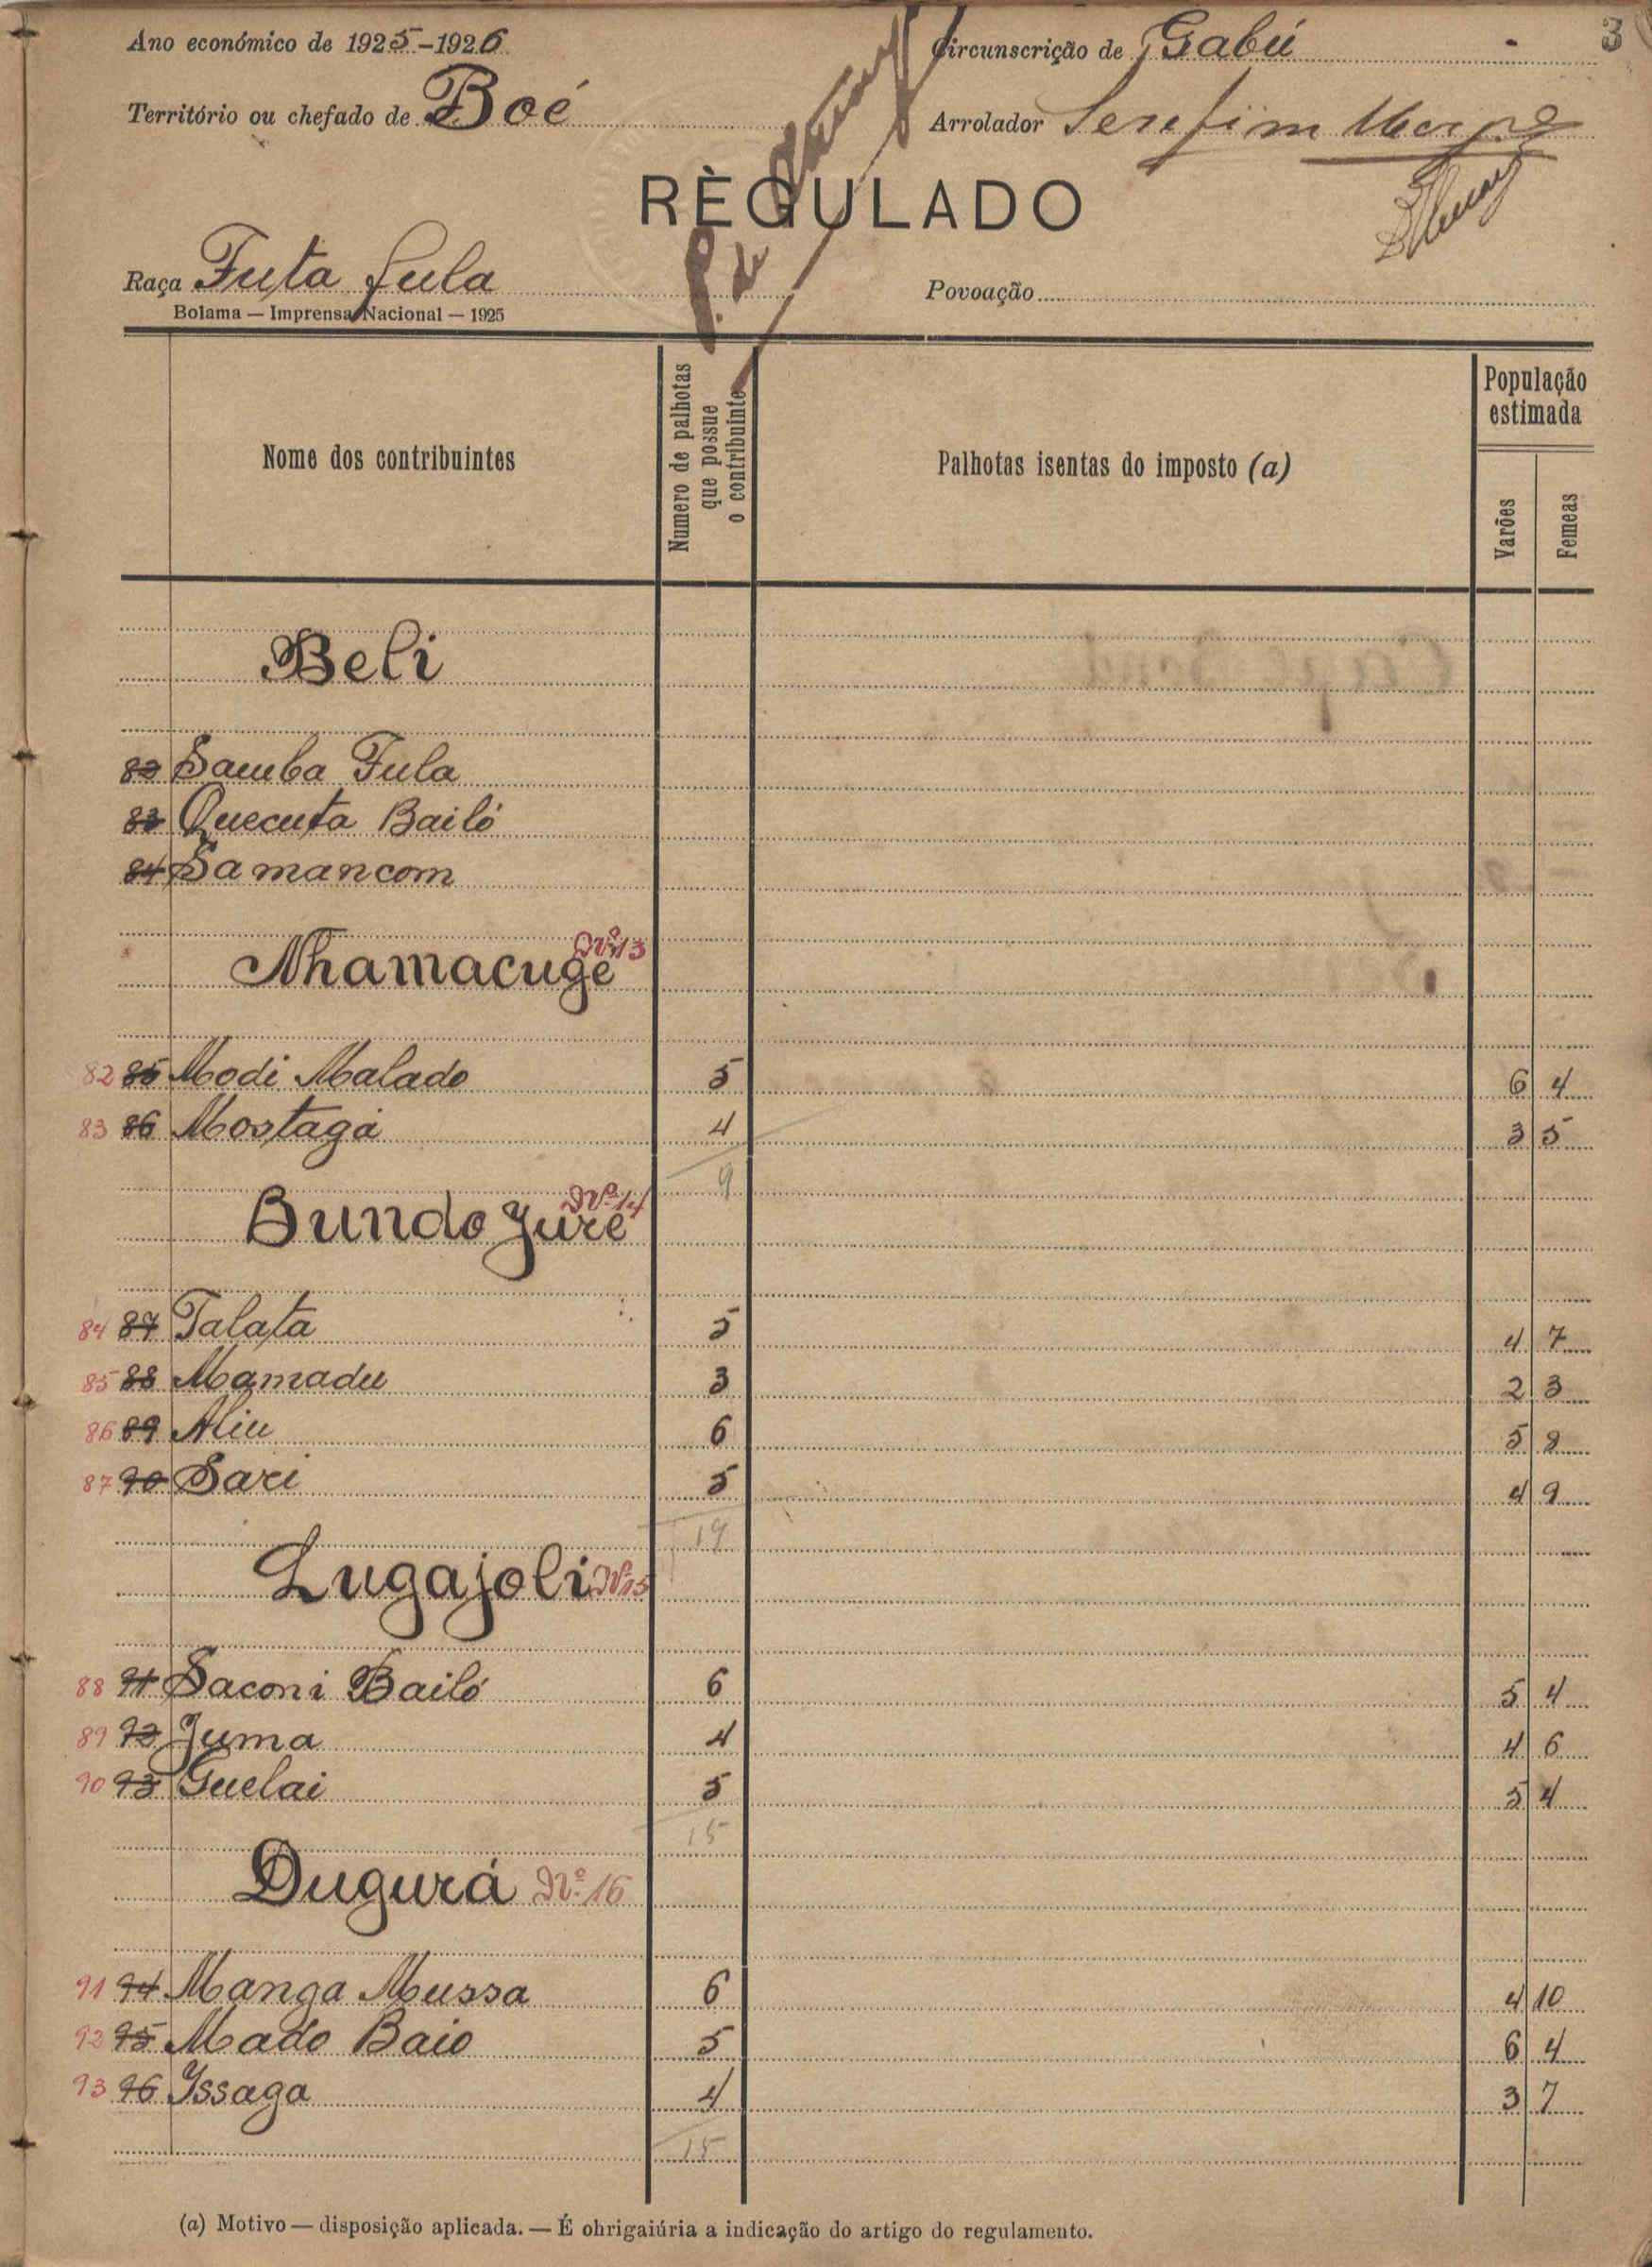 3
Ano económico de 1925-1926 Circunscrição de Gabú
Território ou chefado de Boé Arrolador Serefim
RÈGULADO
Raça Futa fula Povoação
Bolama — Imprensa Nacional — 1925
Nome dos contribuintes Numero de palhotas que possue o contribuinte Palhotas isentas do imposto (a) População estimada
Varões Femeas
Beli
82 Samba Fula
83 Quecuta Bailó
84 Samancom
Nhamacuge Nº 13
82 85 Modi Malado 5 6 4
83 86 Mostaga 4 3 5
9
Bundo Juré Nº 14
84 87 Talata 5 4 7
85 88 Mamadu 3 2 3
86 89 Aliu 6 5 8
87 90 Sari 5 4 9
19
Lugajoli Nº 15
88 91 Saconi Bailó 6 5 4
89 92 Juma 4 4 6
90 93 Guelai 5 5 4
15
Dugurá Nº 16
91 94 Manga Mussa 6 4 10
92 95 Mado Baio 5 6 4
93 96 Issaga 4 3 7
15
(a) Motivo — disposição aplicada. — É ohrigaiúria a indicação do artigo do regulamento.